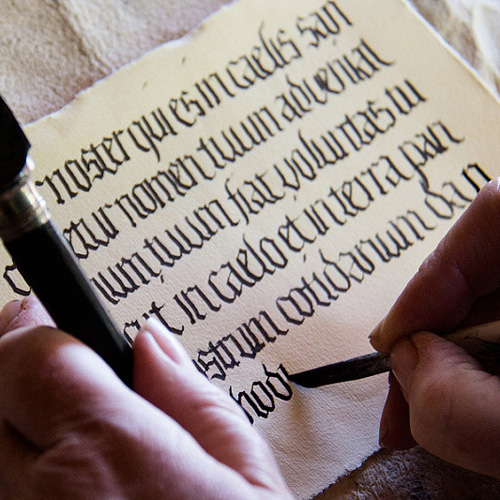 noster qui es in caelis san
cetur nomen tuum adveniat
num tuum fiat voluntas tu
ut in caelo et in terra pan
strum cotidanum da n
hodi